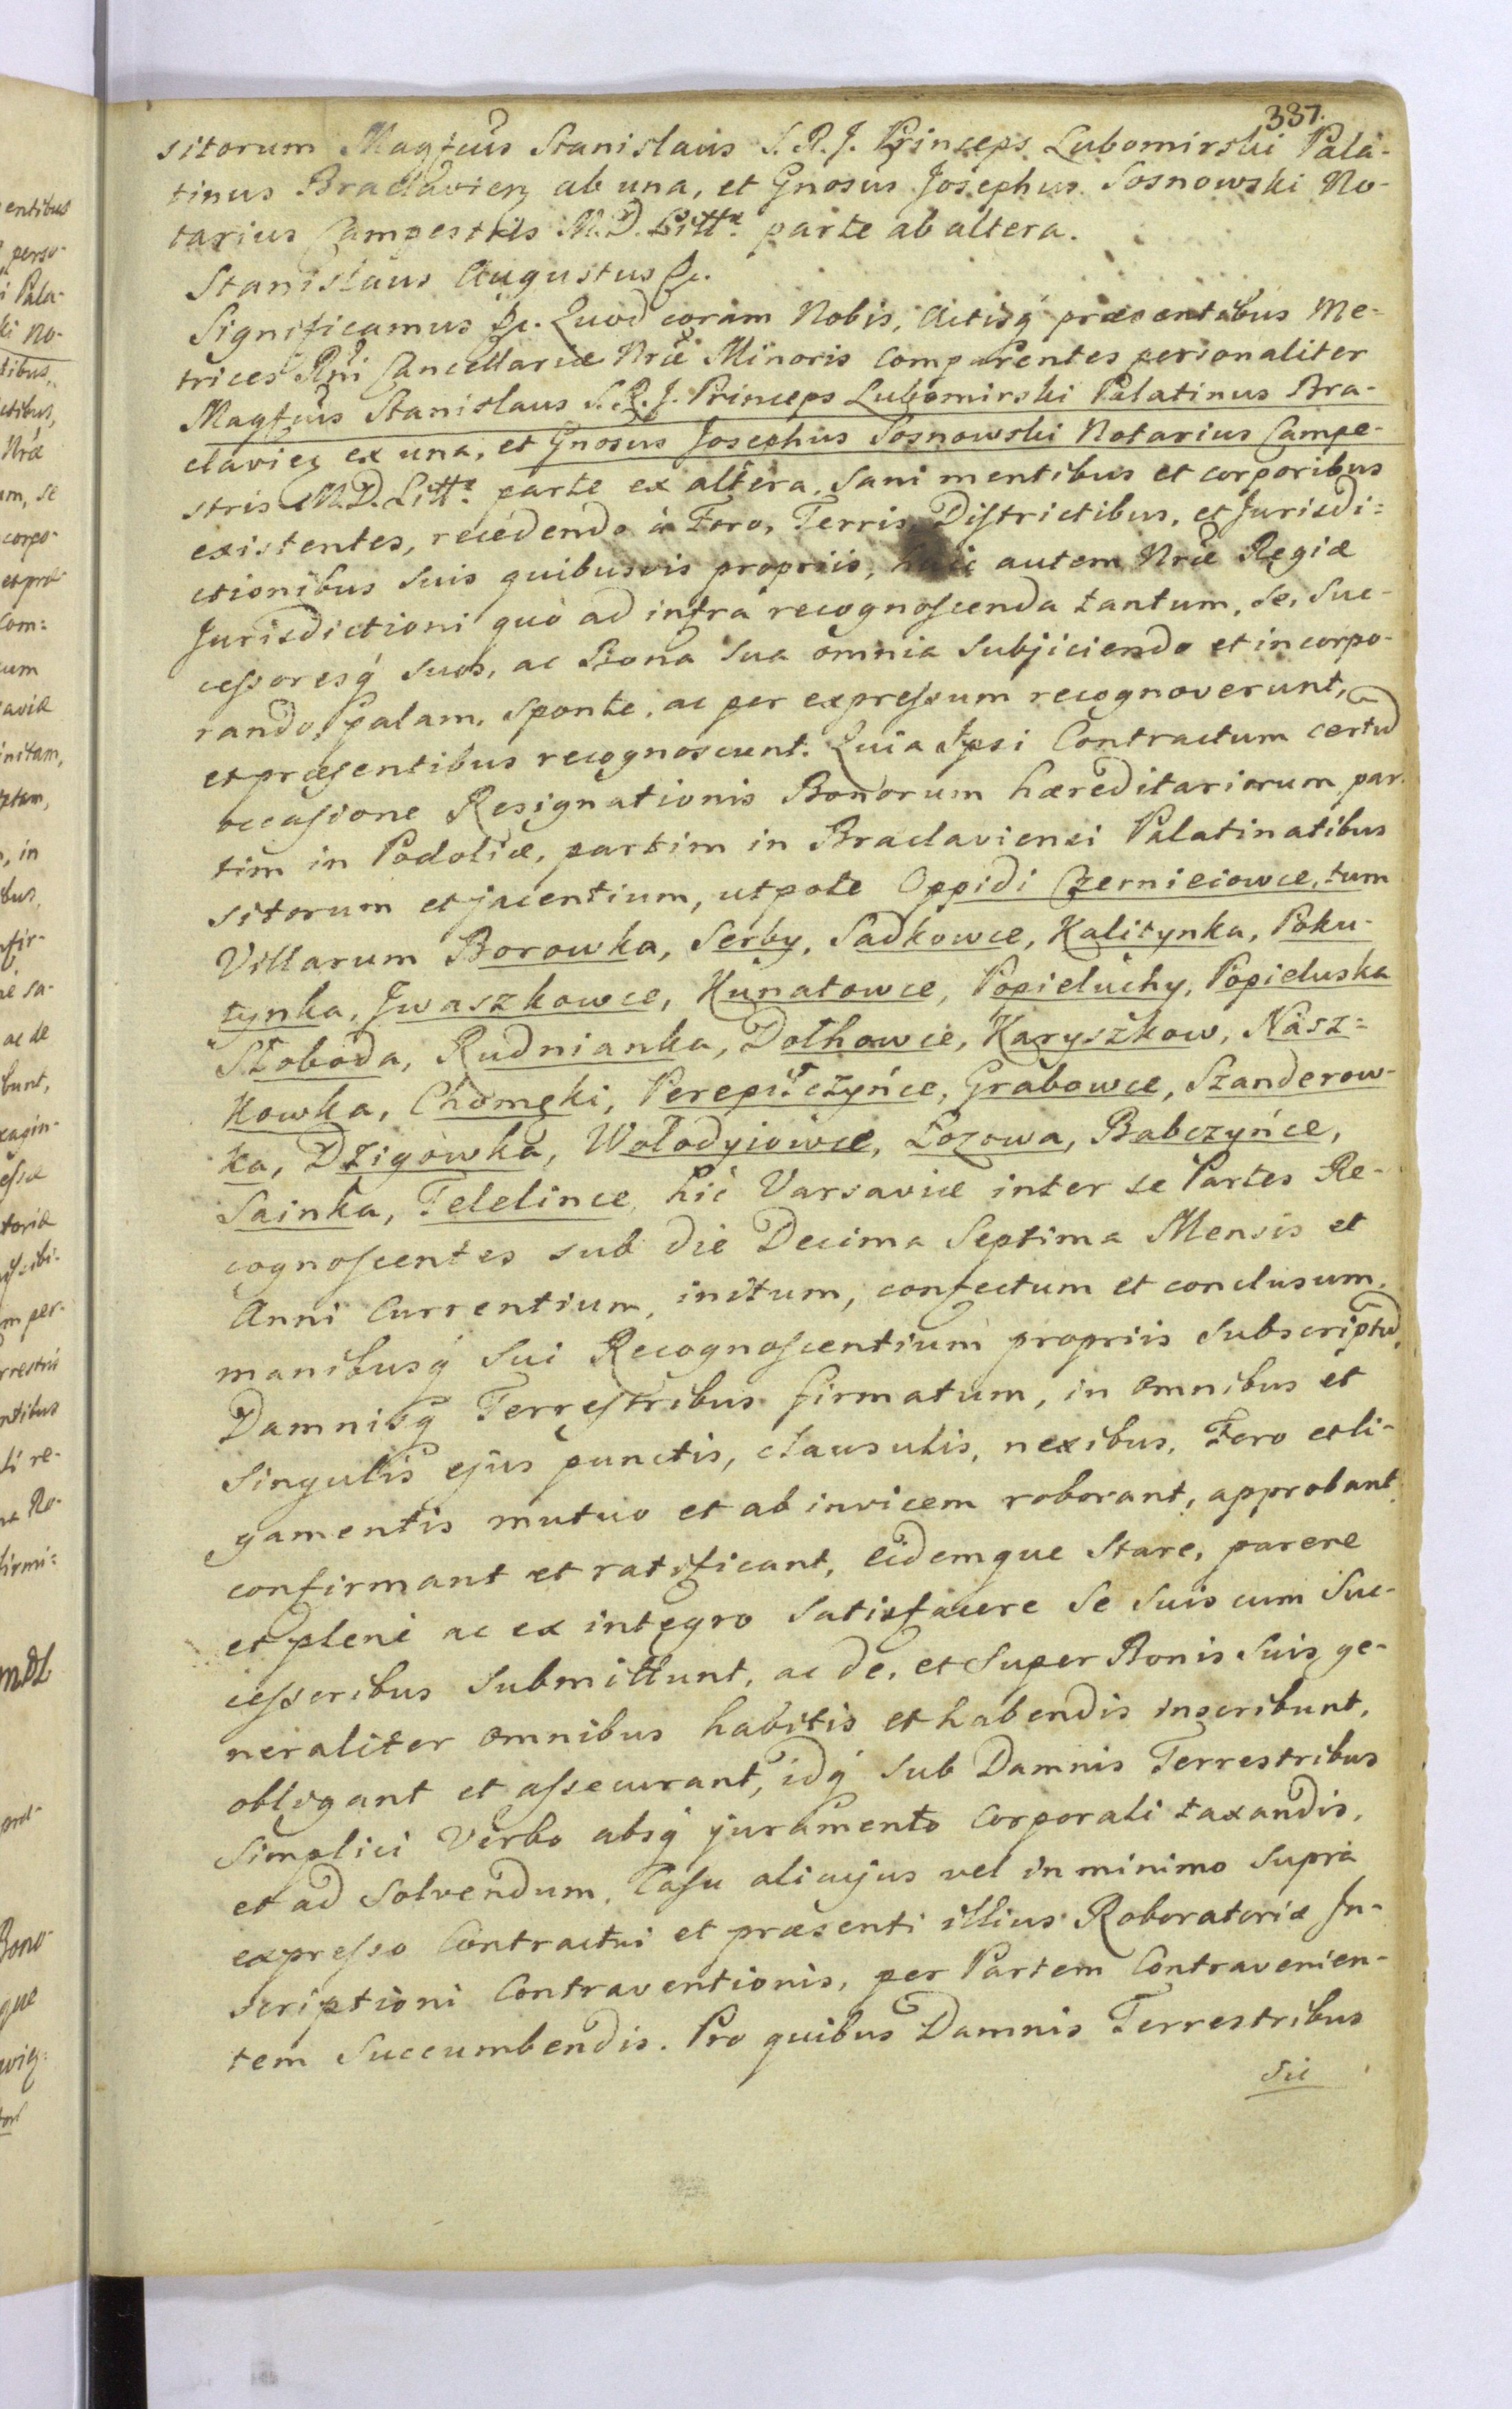 337.
sitorum Magfcus Stanislaus S. R. J. Princeps Lubomirski Pala-
tinus Braclavien ab una, et Gnosus Josephus Sosnowski No-
tarius Campestris M. D. Littæ parte ab altera.
Stanislaus Augustus &c.
Significamus &c. Quod coram Nobis, Actisq præsentibus Me-
trices Rni Cancellariæ Nræ Minoris comparentes personaliter
Magfcus Stanislaus S. R. J. Princeps Lubomirski Palatinus Bra-
clavien ex una, et Gnosus Josephus Sosnowski Notarius Campe-
stris M. D. Littæ parte ex altera, sani mentibus et corporibus
existentes, recedendo à Foro, Terris, Districtibus, et Jurisdi=
ctionibus suis quibusvis propriis, huic autem Nræ Regiæ
Jurisdictioni quo ad infra recognoscenda tantum, se, suc-
cessoresq suos, ac Bona sua omnia subjiciendo et incorpo-
rando, palam, sponte, ac per expressum recognoverunt,
et præsentibus recognoscunt. Quia Ipsi Contractum certū
occasione Resignationis Bonorum hæreditariorum par-
tim in Podoliæ, partim in Braclaviensi Palatinatibus
sitorum et jacentium, utpote Oppidi Czernieiowce, tum
Villarum Borowka, Serby, Sadkowce, Kalitynka, Poku-
tynka, Jwaszkowce, Kunatowce, Popieluchy, Popieluska
Słoboda, Rudnianka, Dołhowce, Karyszkow, Nasz=
kowka, Chomęki, Perepilczyńce, Grabowce, Szanderow-
ka, Dzigowka, Wołodyiowce, Łozowa, Babczyńce,
Sainka, Telelince, hic Varsaviæ inter se Partes Re-
cognoscentes sub die Decima Septima Mensis et
Anni Currentium, initum, confectum et conclusum,
manibusq sui Recognoscentium propriis subscriptū,
Damnisq Terrestribus firmatum, in omnibus et
singulis ejus punctis, clausulis, nexibus, Foro et li-
gamentis mutuo et ab invicem roborant, approbant,
confirmant et ratificant, eidemque stare, parere
et plenè ac ex integro satisfacere se suis cum suc-
cessoribus submittunt, ac de, et super Bonis suis ge-
neraliter omnibus habitis et habendis inscribunt,
obligant et assecurant, idq sub Damnis Terrestribus
simplici Verbo absq juramento corporali taxandis,
et ad solvendum, Casu alicujus vel in minimo supra
expresso Contractui et præsenti illius Roboratoriæ In-
scriptioni Contraventionis, per Partem Contravenien-
tem succumbendis. Pro quibus Damnis Terrestribus
sic